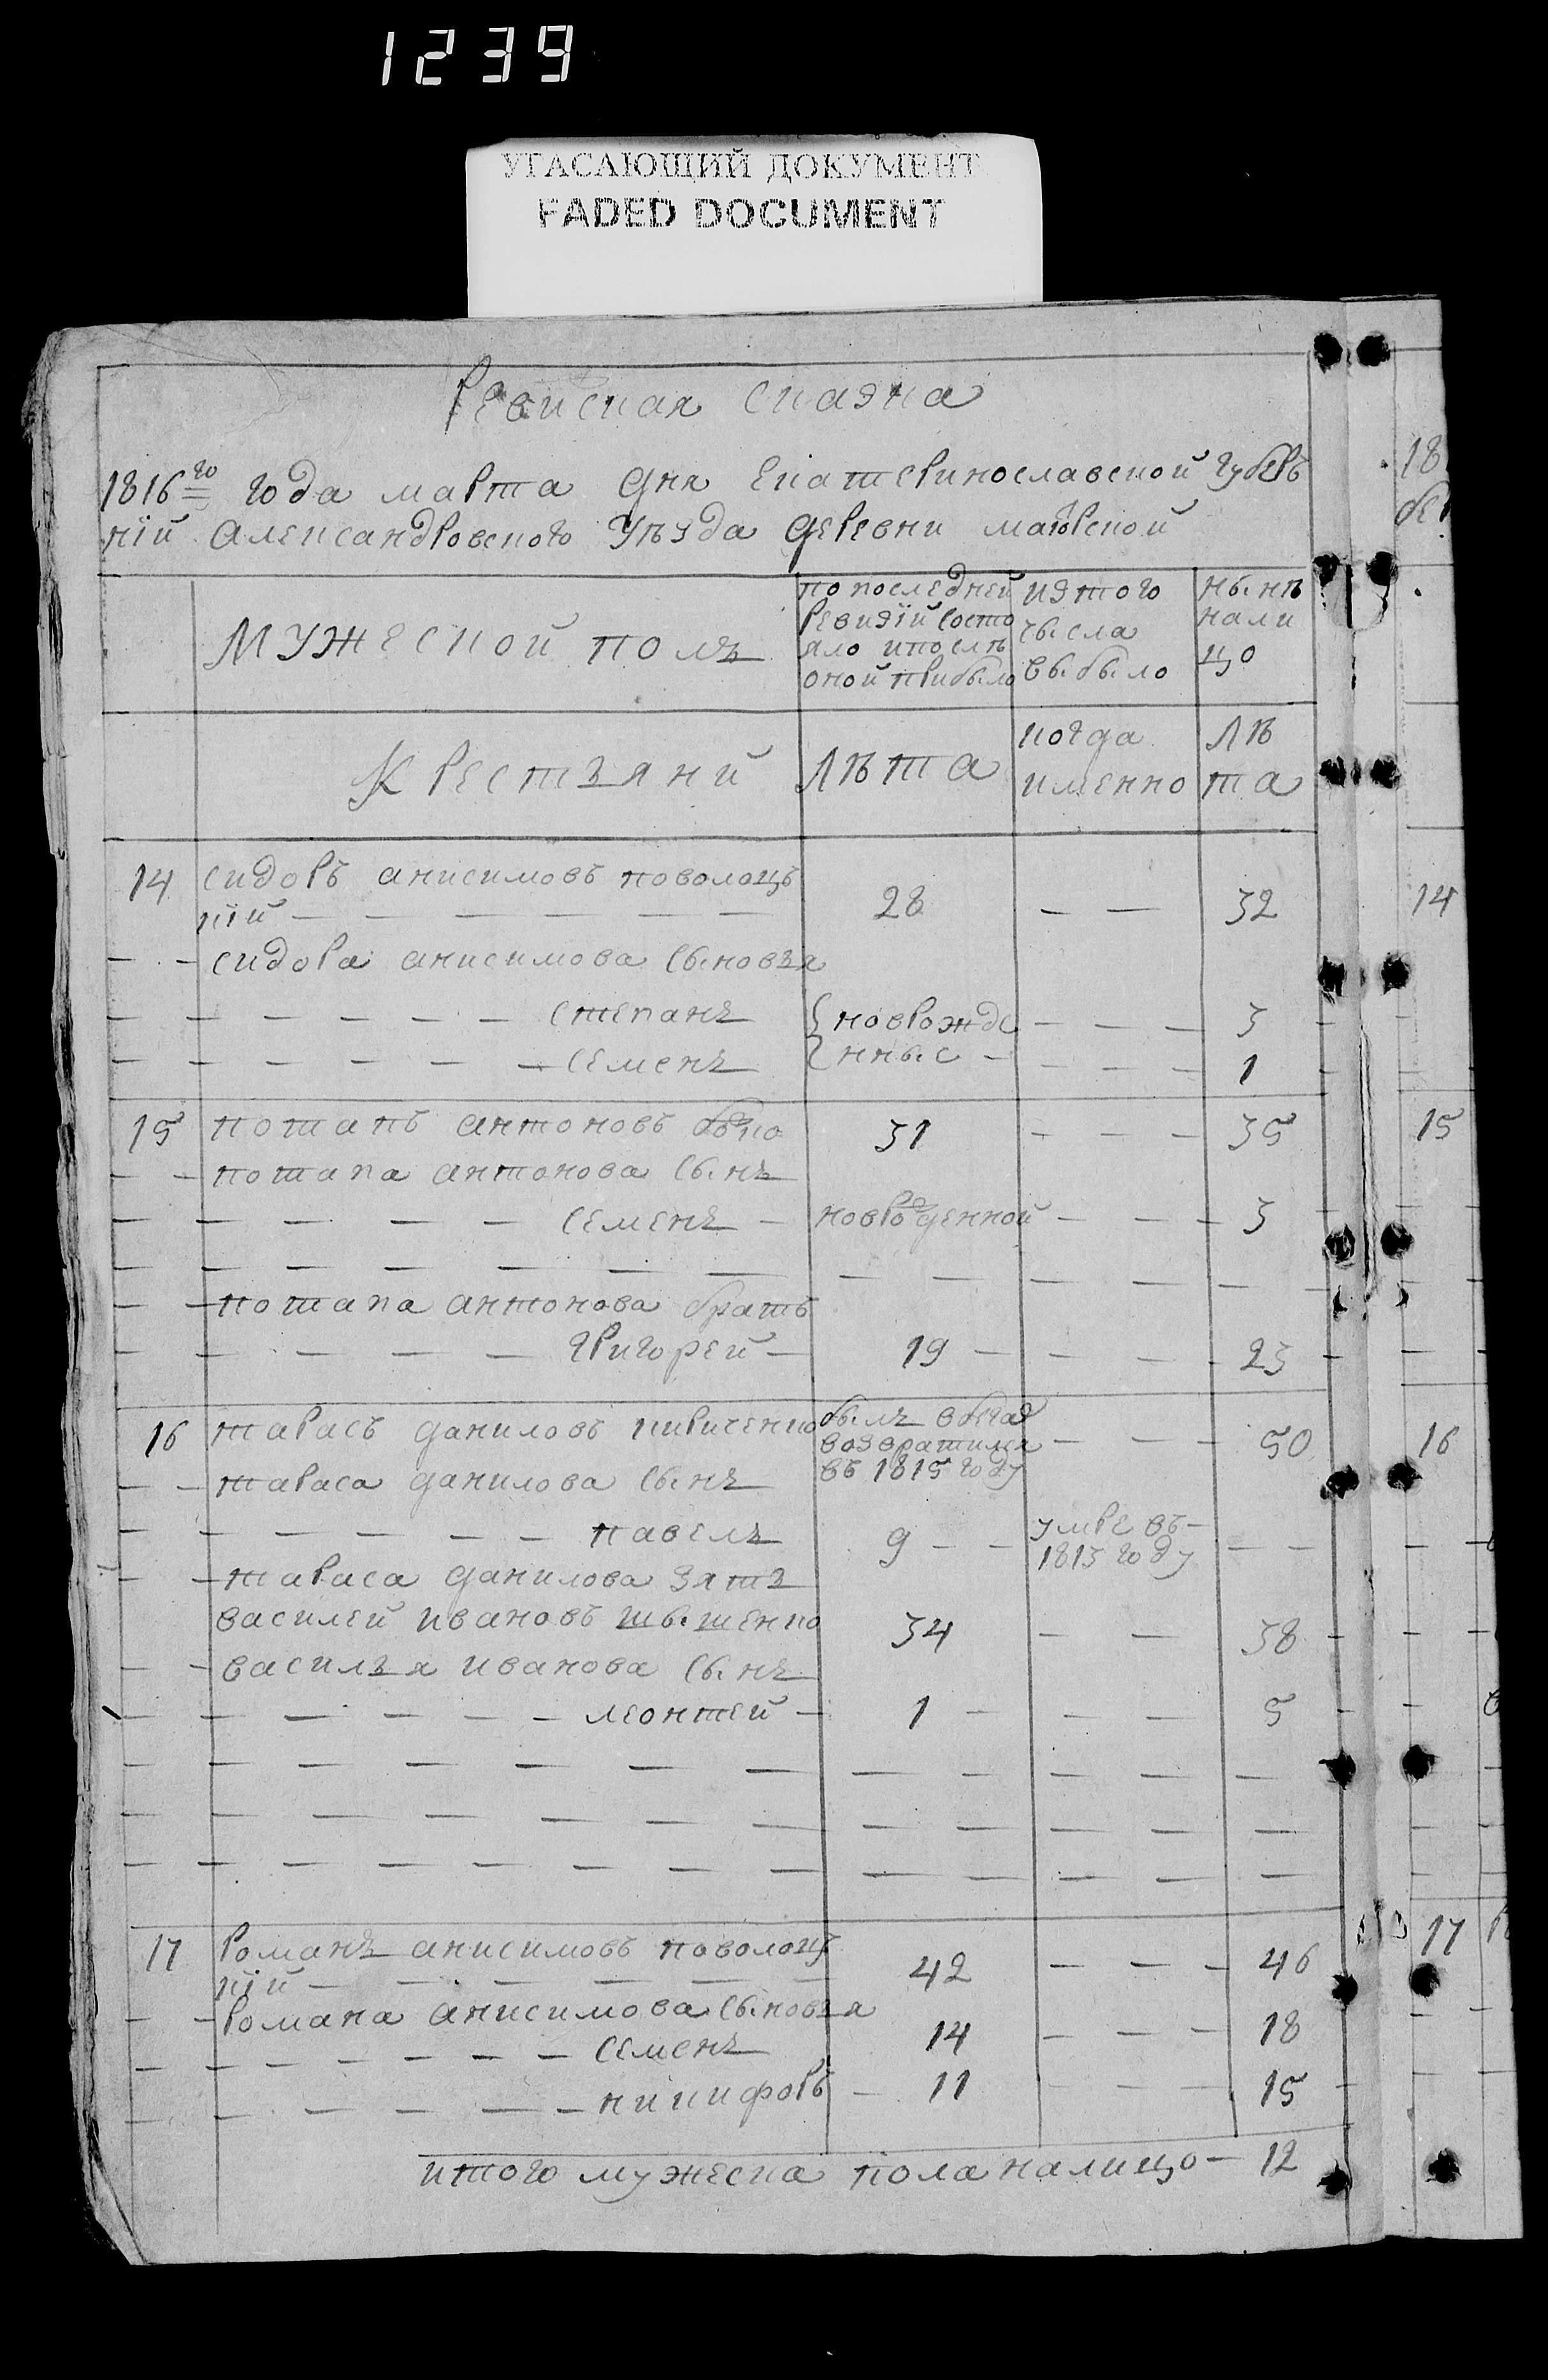 1239
УГАСАЮЩИЙ ДОКУМЕНТ
FADED DOCUMENT
Ревиская скаska
1816го года марта дня Екатеринославской губеръ
ний Александровского Уѣзда деревни маіорской
Мужеской полъ
по последней
ревизїй состо
яло и послѣ
оной прибыло
из того
числа
выбыло
нынѣ
нали
цо
Крестьяний
Лѣта
когда
именно
лѣ
та
14 сидоръ анисимовъ поволоцъ
кїй — — — — — — 28 — — 32
— — сидора анисимова сыновья
— — — — — — степанъ { новрожде — — — 3
— — — — — — семенъ { нные — — — — 1
15 потапъ антоновъ — — — 31 35
— — потапа антонова сынъ
— — — — — семенъ — новрожденной — — — 3
— — потапа антонова братъ
— — — — — григорей — 19 — — — 23
16 тарасъ даниловъ кириченко былъ в бегах
возвратился — — — 50
— — тараса данилова сынъ въ 1815 году
— — — — — — павелъ 9 — — умре въ —
1813 году — —
— — тараса данилова зять
василей ивановъ швыщенко 34 — — 38
— — василья иванова сынъ
— — — — — — леонтей — 1 — — — 5
17 романъ анисимовъ поволоцъ
кїй — — — — — — 42 — — — 46
— — романа анисимова сыновья
— — — — — — — семенъ 14 — — — 18
— — — — — — никифоръ — 11 — — — 15
итого мужеска пола налицо — 12
18
14
15
16
17